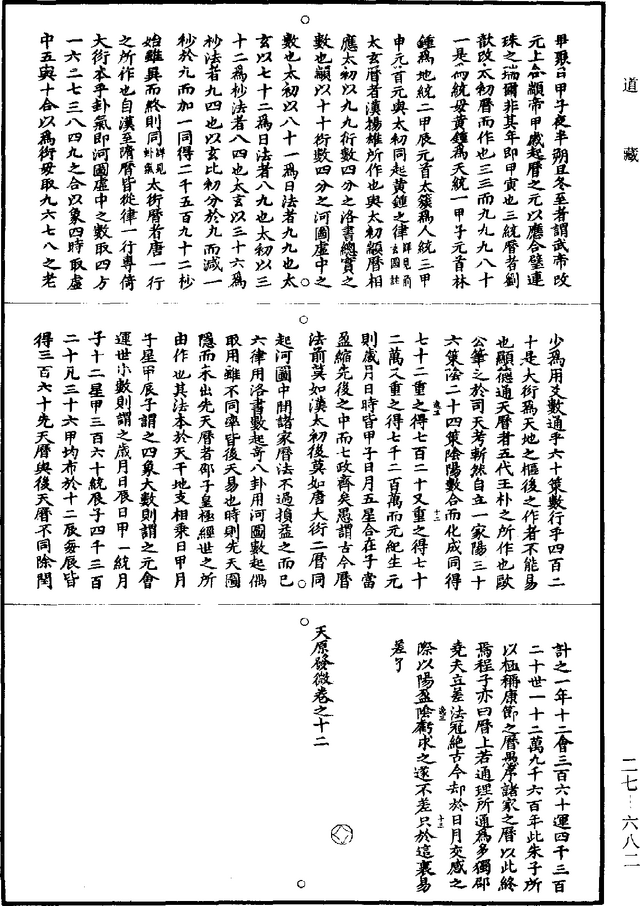 道藏
畢聚日甲子夜半朔旦冬至者謂武帝改
元上合顓帝甲歲起曆之元以應合璧連
珠之瑞爾非其年即甲寅也三統曆者劉
歆改太初曆而作也三三而九九九八十
一是爲統母黃鍾爲天統一甲子元首林
鍾爲地統二甲辰元首太簇爲人統三甲
申元首元與太初同起黃鍾之律詳見前玄圖註
太玄曆者漢揚雄所作也與太初顓曆相
應太初以九九衍數四分之洛書總實之
數也顓以十十衍數四分之河圖虛中之
數也太初以八十一爲日法者九九也太
玄以七十二爲日法者八九也太初以三
十二爲杪法者八四也太玄以三十六爲
杪法者九四也以玄比初分於九而減一
杪於九而加一同得二千五百九十二杪
始雖異而終則同詳見卦氣太衍曆者唐一行
之所作也自漢至隋曆皆從律一行專倚
大衍本乎卦氣即河圖虛中之數取四方
一六二七三八四九之合以象四時取虛
中五與十合以爲衍母取九六七八之老
少爲用爻數通乎六十策數行乎四百二
十是大衍爲天地之樞後之作者不能易
也顯德通天曆者五代王朴之所作也歐
公筆之於司天考斬然自立一家陽三十
六策陰二十四策陰陽數合而化成同得
七十二重之得七百二十又重之得七十
二萬又重之得七千二百萬而元紀生元
則歲月日時皆甲子日月五星合在子當
盈縮先後之中而七政齊矣愚謂古今曆
法前莫如漢太初後莫如唐大衍二曆同
起河圖中閒諸家曆法不過損益之而已
六律用洛書數起奇八卦用河圖數起偶
取用雖不同率皆後天易也時則先天圖
隱而未出先天曆者邵子皇極經世之所
由作也其法本於天干地支相乘日甲月
子星甲辰子謂之四象大數則謂之元會
運世小數則謂之歲月日辰日甲一統月
子十二星甲三百六十統辰子四千三百
二十凡三十六甲均布於十二辰每辰皆
得三百六十先天曆與後天曆不同除閏
計之一年十二會三百六十運四千三百
二十世一十二萬九千六百年此朱子所
以極稱康節之曆愚序諸家之曆以此終
焉程子亦曰曆上若通理所通爲多獨邵
堯夫立差法冠絕古今却於日月交感之
際以陽盈陰虧求之遂不差只於這裏易
差了
天原發微卷之十二
二七—六八二